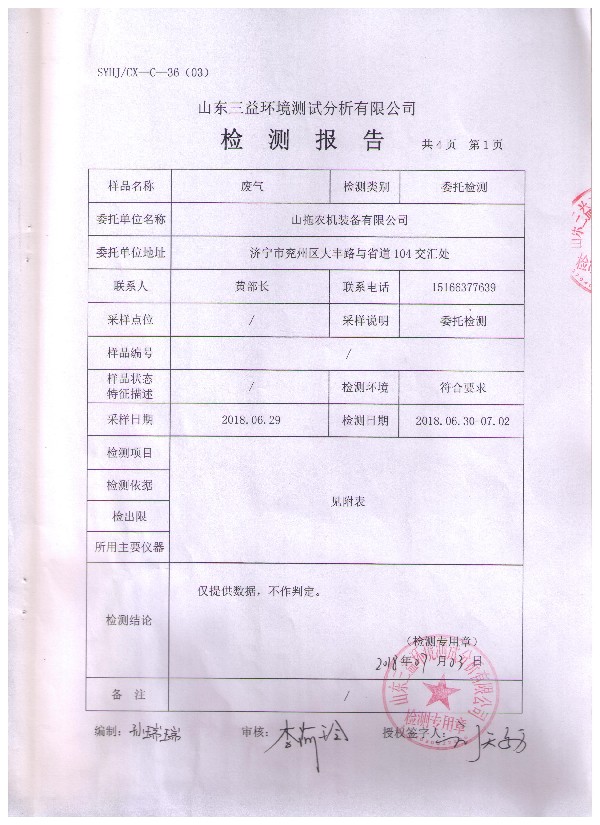 SYHJ/CX—C—36（03）
山东三益环境测试分析有限公司
检 测 报 告 共 4 页 第 1 页
样品名称 废气 检测类别 委托检测
委托单位名称 山拖农机装备有限公司
委托单位地址 济宁市兖州区大丰路与省道 104 交汇处
联系人 黄部长 联系电话 15166377639
采样点位 / 采样说明 委托检测
样品编号 /
样品状态
特征描述 / 检测环境 符合要求
采样日期 2018.06.29 检测日期 2018.06.30-07.02
检测项目
检测依据
见附表
检出限
所用主要仪器
仅提供数据，不作判定。
检测结论
（检测专用章）
2018年07月03日
山东三益环境测试分析有限公司
检测专用章
备 注 /
编制：孙瑞瑞 审核： 授权签字人：